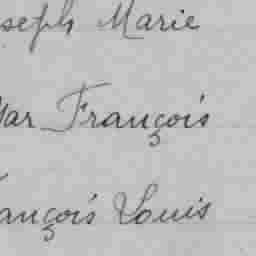 seph Marie
ar François
ançois Louis